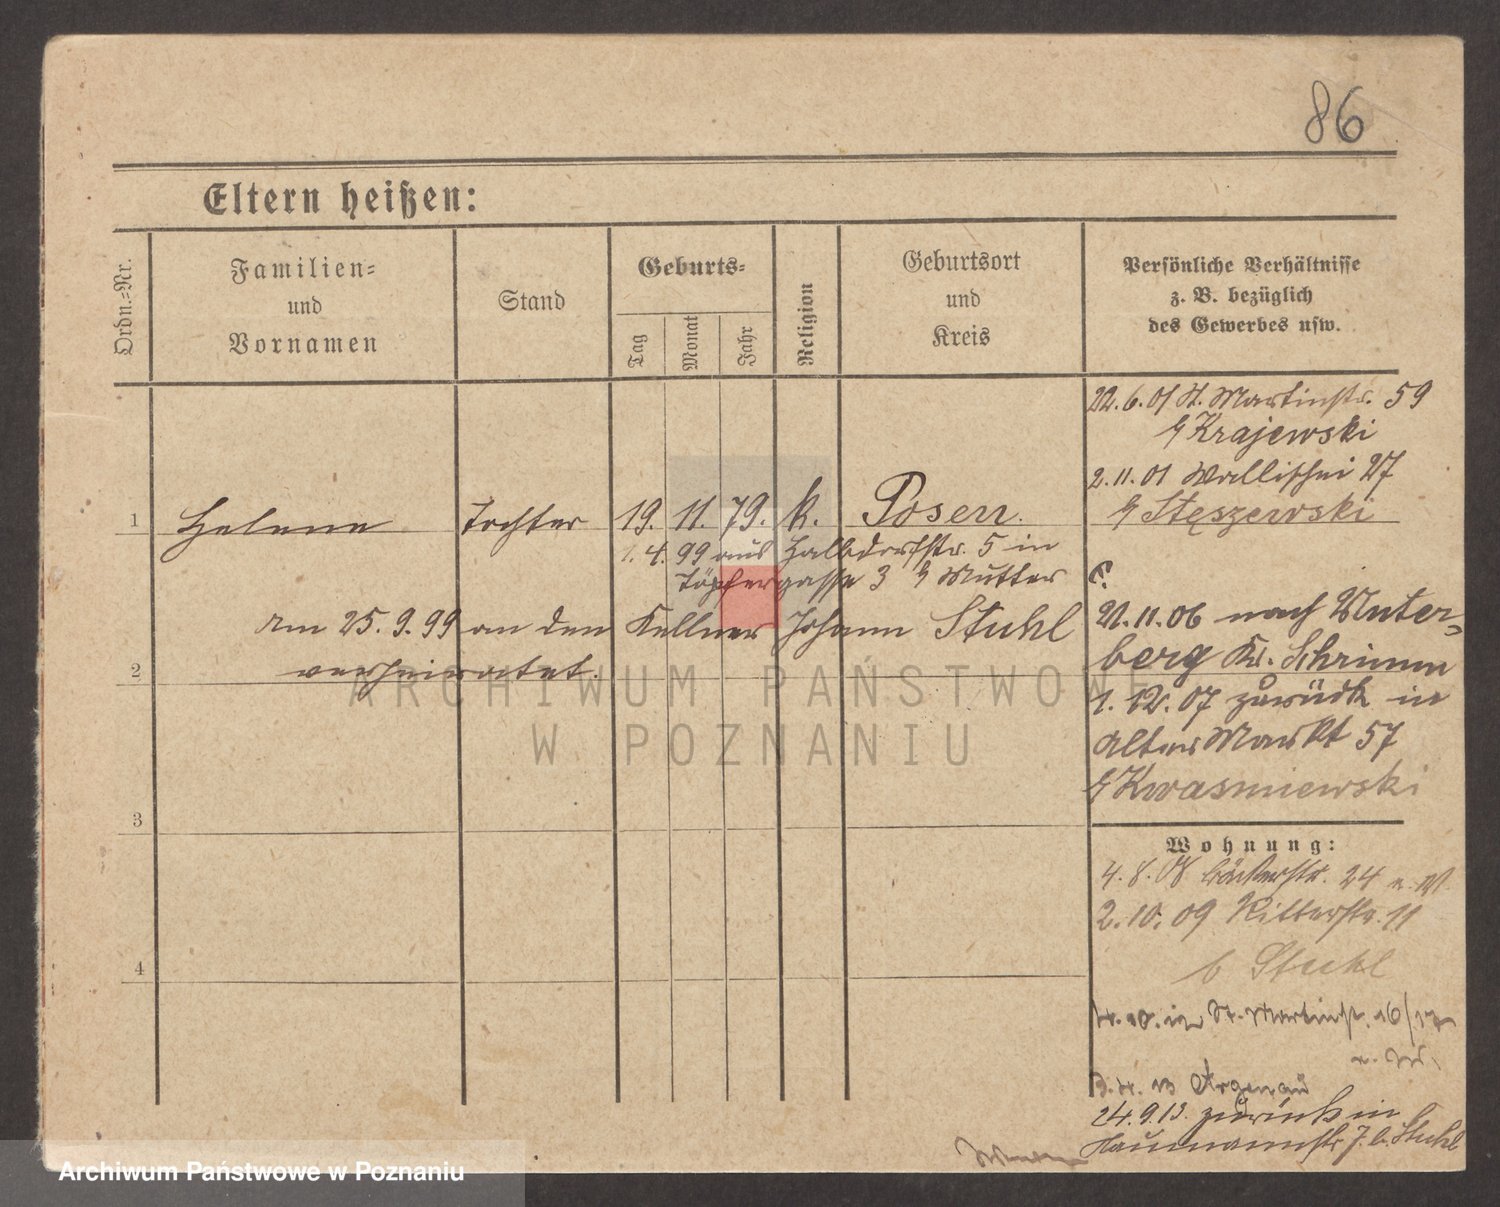 86
Eltern heißen:
Ordn.-Nr.
Familien-
und
Vornamen
Stand
Geburts-
Tag
Monat
Jahr
Religion
Geburtsort
und
Kreis
Persönliche Verhältnisse
z. B. bezüglich
des Gewerbes usw.
22.6.01 St. Martinstr. 59
Krajewski
2.11.01 Wallischei 27
Stęszewski
1 Helene Tochter 19. 11. 79. k. Posen.
1.4.99 aus Halbdorfstr. 5 in
Töpfergasse 3 Mutter
am 25.9.99 an den Kellner Johann Stuhl
2 verheiratet.
21.11.06 nach Unter-
berg Kr. Schrimm
1.12.07 zurück in
Alter Markt 57
Kwasniewski
3
Wohnung:
4.8.08 Bäckerstr. 24
2.10.09 Ritterstr. 11
b Stuhl
4
St. Martinstr. 16/17
Argenau
24.9.13. zurück in
Naumannstr. 7. b. Stuhl
ARCHIWUM PAŃSTWOWE
W POZNANIU
Archiwum Państwowe w Poznaniu